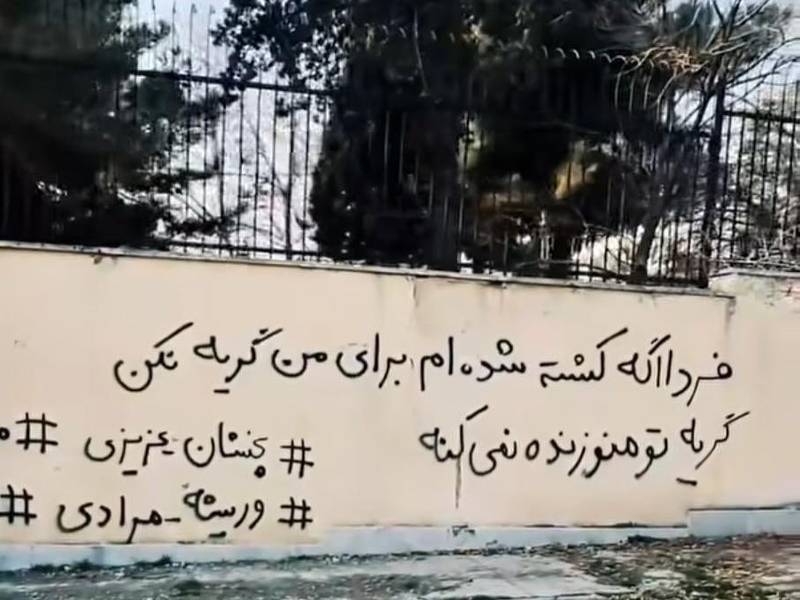 فردا اگه کشته شده ام برای من گریه نکن
گریه تو منو زنده نمی کنه
# عزیزی #
# وریشه_مرادی #